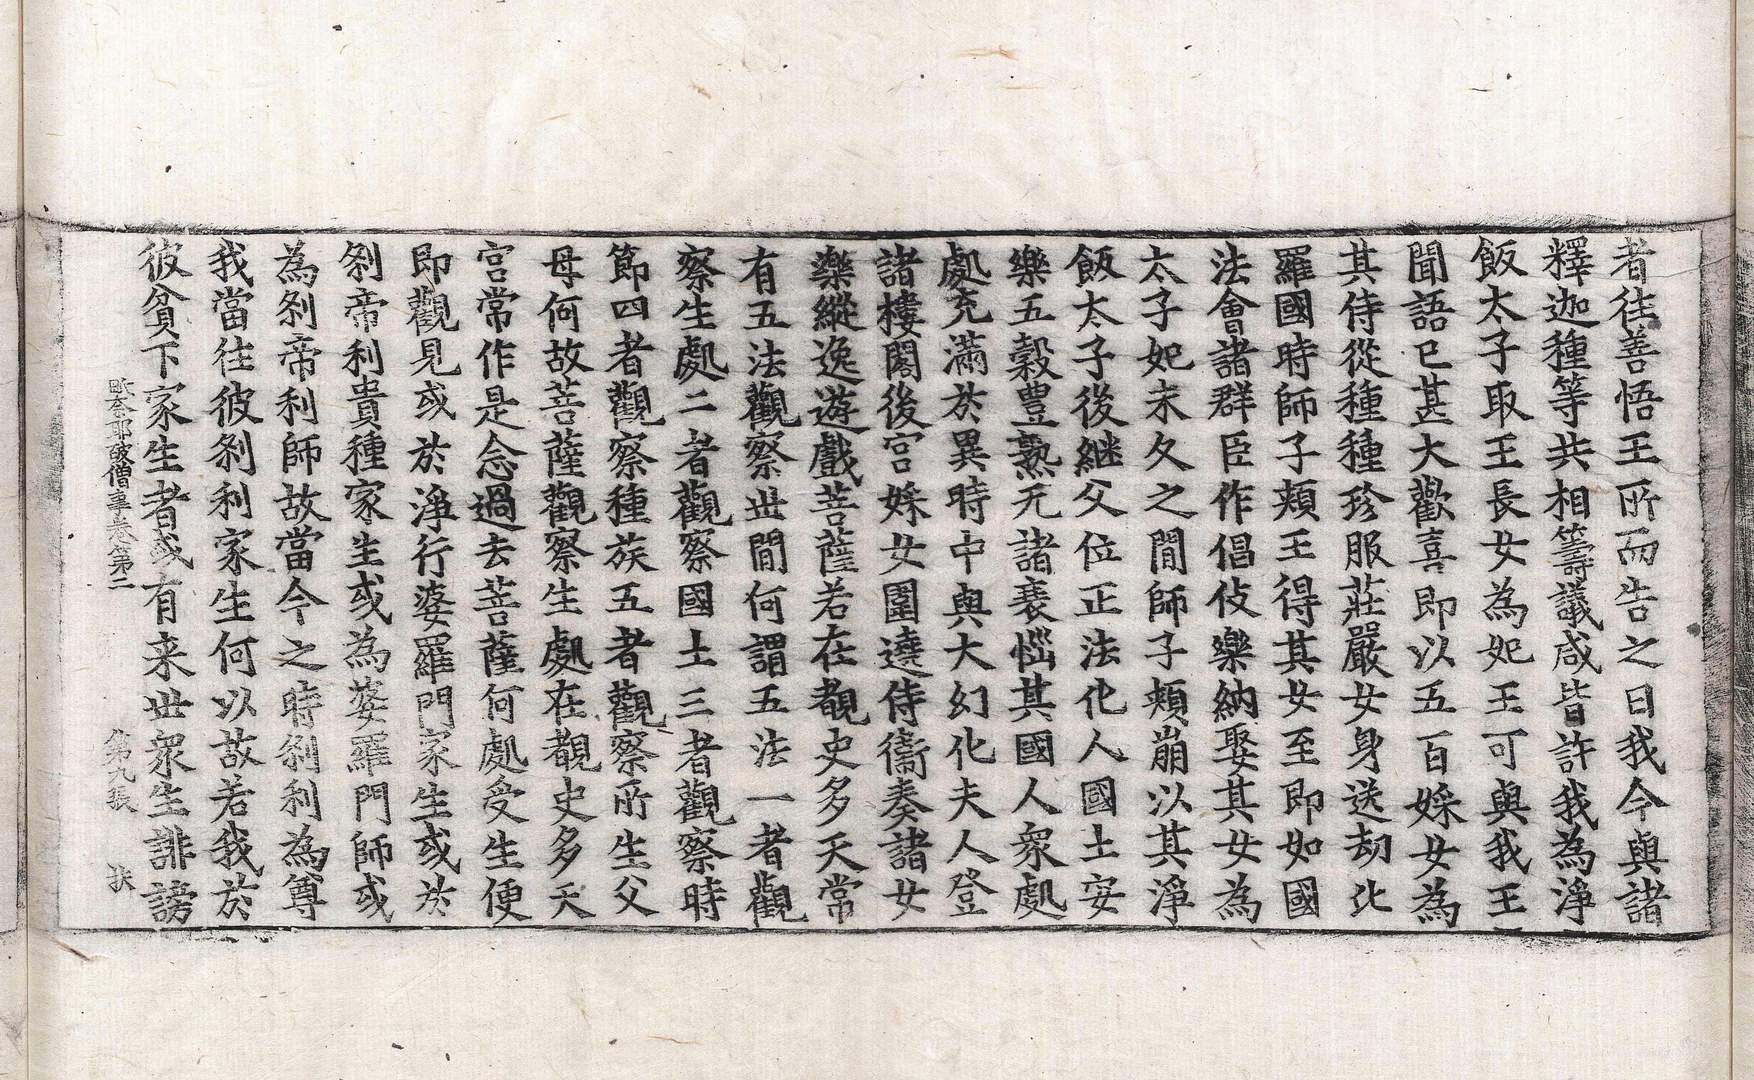 者往善悟王所而告之曰我今與諸
釋迦種等共相籌議咸皆許我為淨
飯太子取王長女為妃王可與我王
聞語已甚大歡喜即以五百婇女為
其侍從種種珍服莊嚴女身送劫比
羅國時師子頰王得其女至即如國
法會諸群臣作倡伎樂納娶其女為
太子妃未久之間師子頰崩以其淨
飯太子後継父位正法化人國土安
樂五穀豊熟无諸衰惱其國人衆處
處充滿於異時中與大幻化夫人登
諸樓閣後宮婇女圍遶侍衞奏諸女
樂縱逸遊戲菩薩若在覩史多天常
有五法觀察世間何謂五法一者觀
察生處二者觀察國土三者觀察時
節四者觀察種族五者觀察所生父
母何故菩薩觀察生處在覩史多天
宮常作是念過去菩薩何處受生便
即觀見或於淨行婆羅門家生或於
剎帝利貴種家生或為婆羅門師或
為剎帝利師故當今之時剎利為尊
我當往彼剎利家生何以故若我於
彼貧下家生者或有来世衆生誹謗
毗奈耶破僧事卷第二 第九張 扶